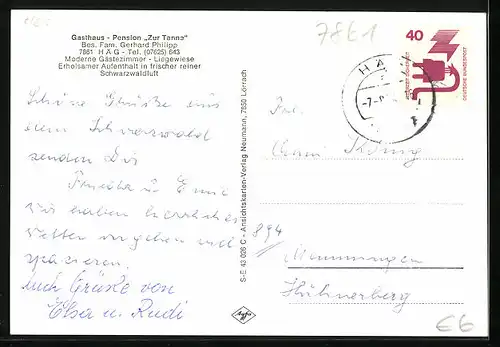 Gasthaus - Pension „Zur Tanne"
Bes. Fam. Gerhard Philipp
7861 HÄG - Tel. (07625) 643
Moderne Gästezimmer - Liegewiese
Erholsamer Aufenthalt in frischer reiner
Schwarzwaldluft
7861
40
DEUTSCHE BUNDESPOST
HÄG
Schöne Grüße aus
dem Schwarzwald
senden Dir
Frieda u.
Wir haben herrliches
Wetter und
spazieren.
auch Grüße von
Elsa u. Rudi
S-E 43 026 C - Ansichtskarten-Verlag Neumann, 7850 Lörrach
Frl.
König
894
Memmingen
Hühnerberg
Agfa
€6